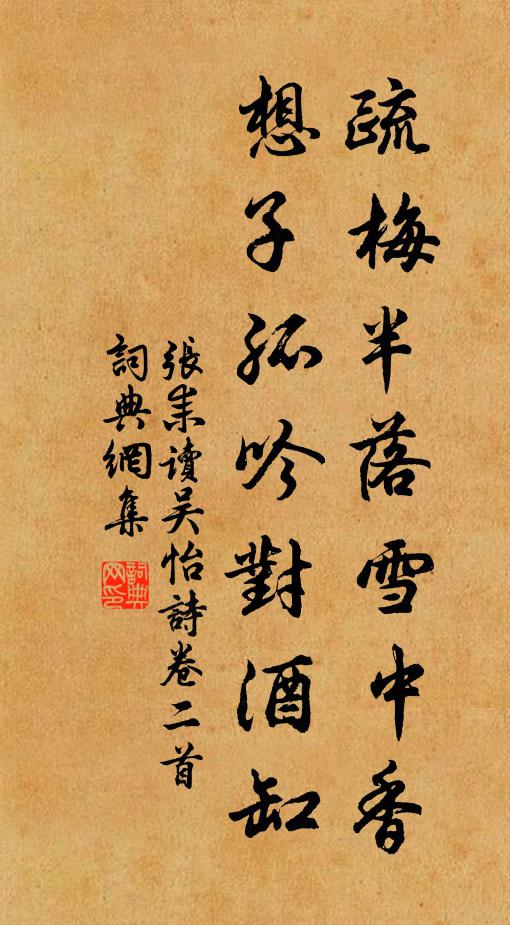 疏梅半落雪中香
想子孤吟對酒缸
張耒讀吳怡詩卷二首
詞典網集
詞典網印